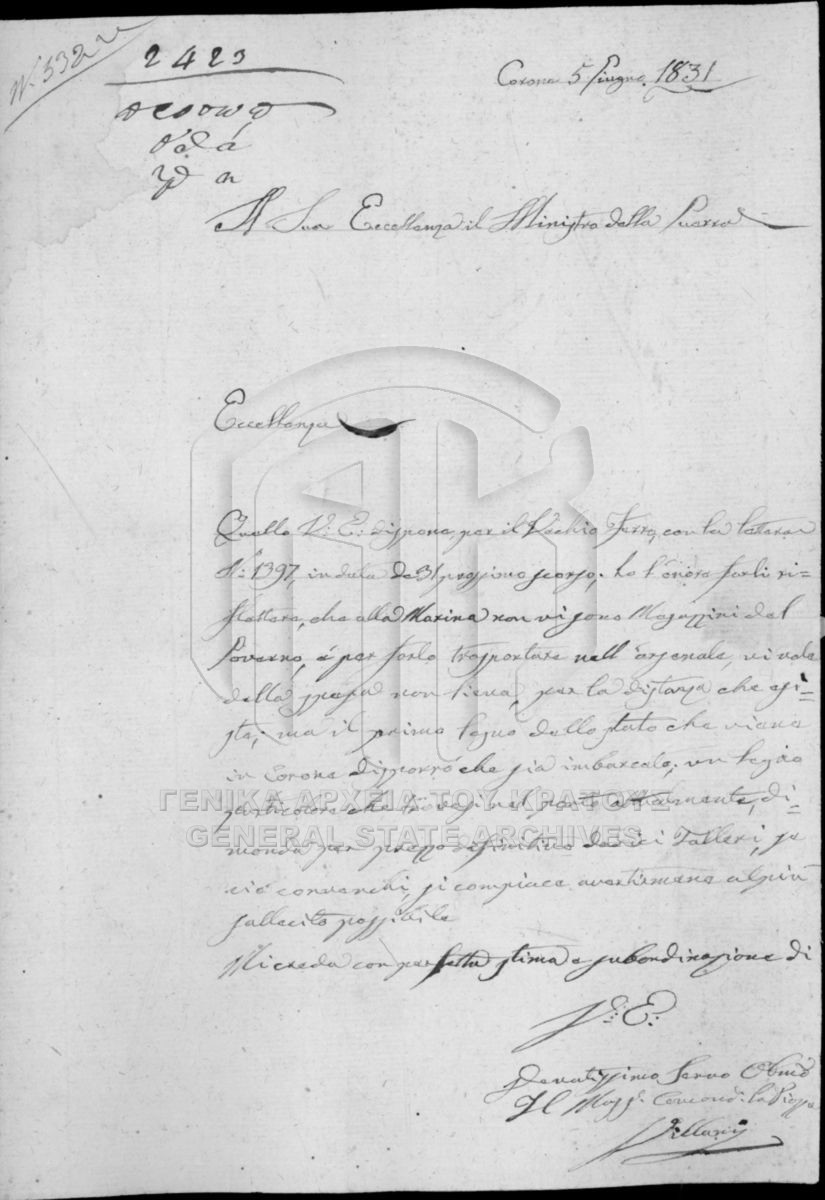 N. 332
2423
Corone 5 Giugno 1831
A Sua Eccellenza il Ministro della Guerra
Eccellenza
Quello V: E: dispone per il Vechio Ferro, con la lettera
N: 1397, in data de 31 prossimo scorso; ho l'onore farli ri=
flettere, che alla Marina non vi sono Magazzini del
Governo, é per farlo trasportare nell'arsenale, vi vole
della spesa non lieve, per la distanza che esi=
ste; ma il primo legno dello stato che viene
in Corone disporrò che sia imbarcato; un legno
particolare che trovasi nel porto attualmente, di=
manda per prezzo definitivo dodici Talleri, se
ció convenghi, si compiace avertirmene al piu
sollecito possibile
Mi creda con perfetta stima e subordinazione di
V: E:
Devotissimo Servo Obmo
Il Magg: Comand: la Piazza
ΓΕΝΙΚΑ ΑΡΧΕΙΑ ΤΟΥ ΚΡΑΤΟΥΣ
GENERAL STATE ARCHIVES